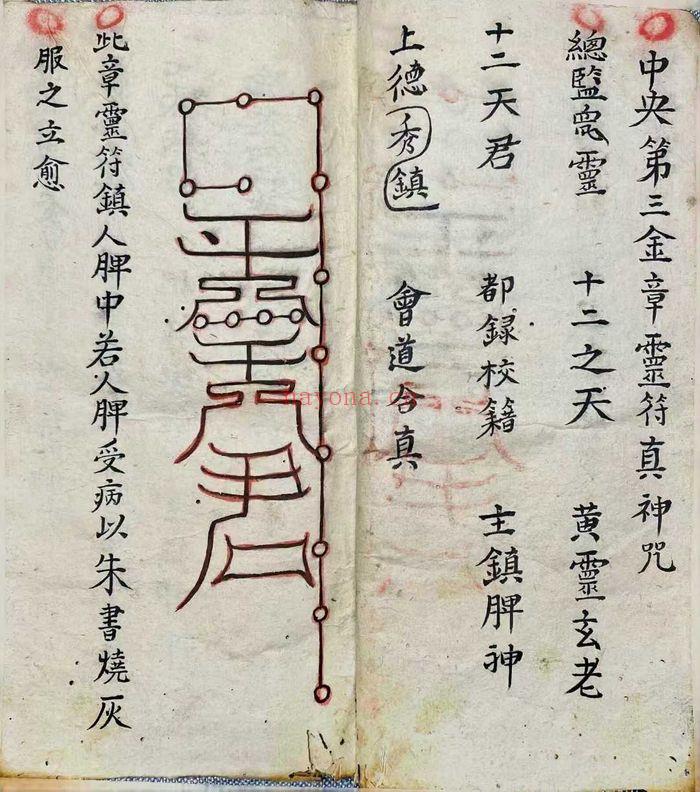 中央第三金章靈符真神咒
總監眾靈 十二之天 黃靈玄老
十二天君 都録校籍 主鎮脾神
上德秀鎮 會道合真
此章靈符鎮人脾中若人脾受病以朱書燒灰
服之立愈
nayona.cn